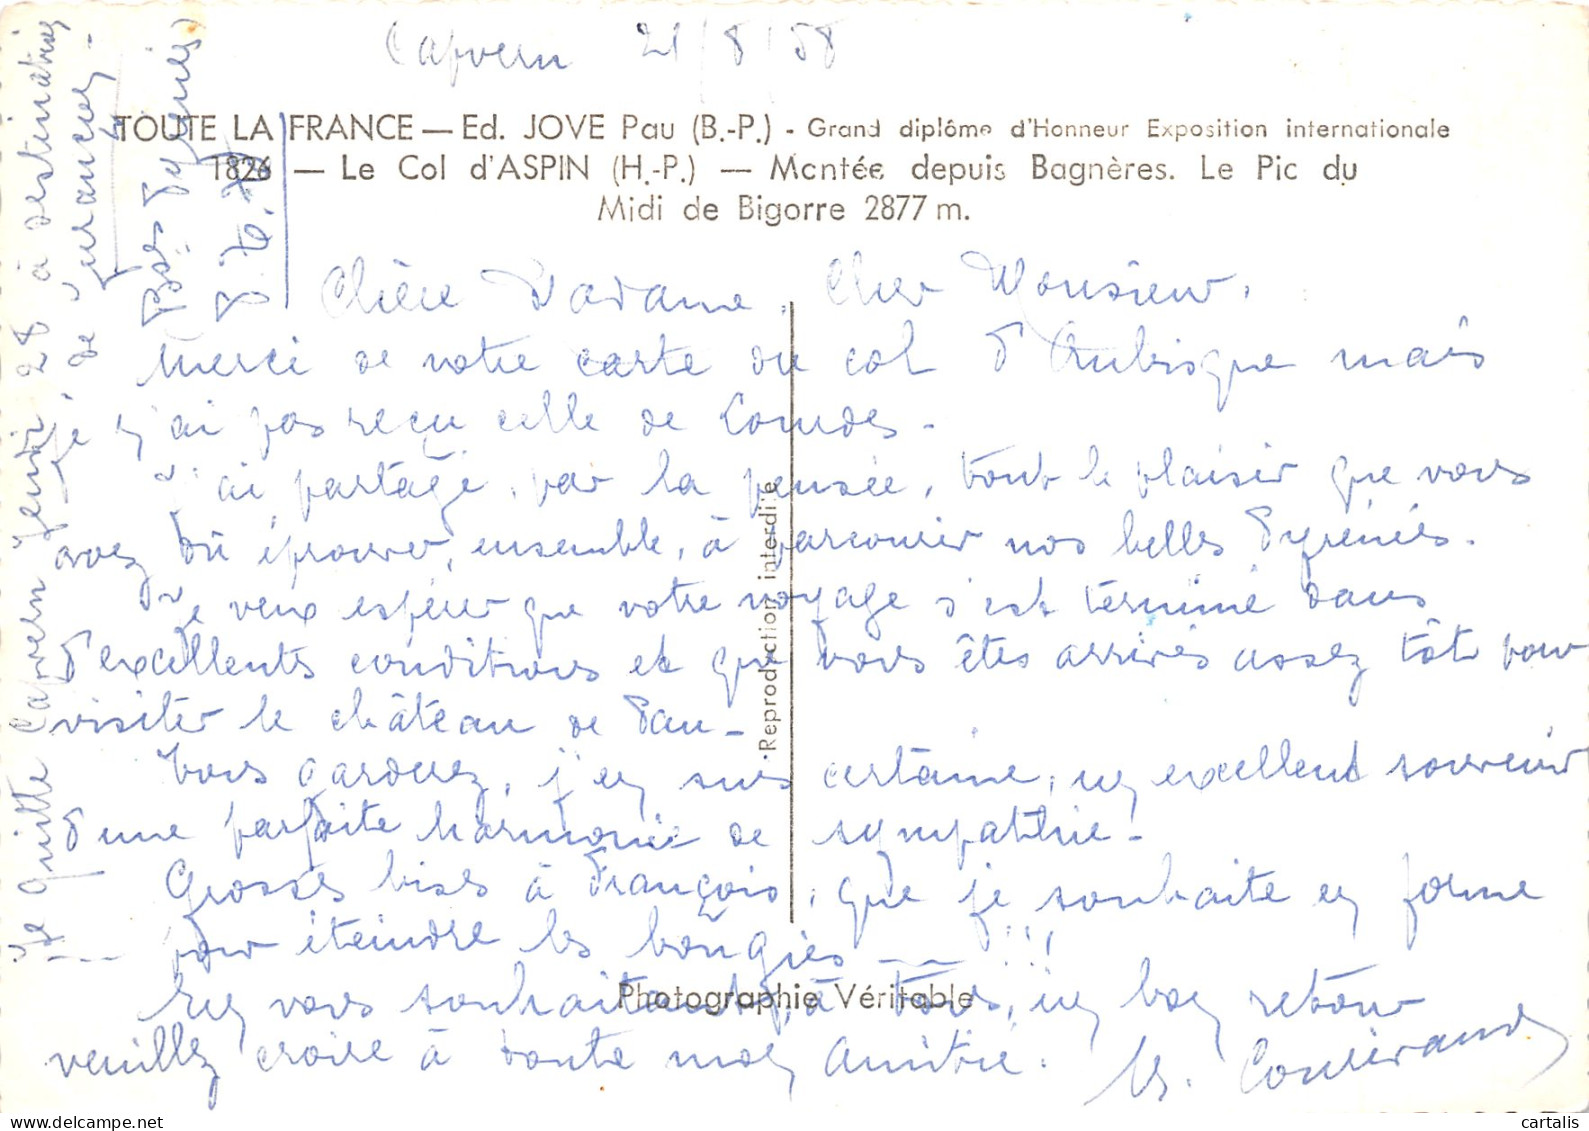 Capvern 21/8/58
TOUTE LA FRANCE — Ed. JOVE Pau (B.-P.) - Grand diplôme d'Honneur Exposition internationale
1826 — Le Col d'ASPIN (H.-P.) — Montée depuis Bagnères. Le Pic du
Midi de Bigorre 2877 m.
Chère Madame, Cher Monsieur,
Merci de votre carte du col d'Aubisque mais
j'ai pas reçu celle de Lourdes.
J'ai partagé, par la pensée, tout le plaisir que vous
avez dû éprouver, ensemble, à parcourir nos belles Pyrénées.
Je veux espérer que votre voyage s'est terminé dans
d'excellentes conditions et que vous êtes arrivés assez tôt pour
visiter le château de Pau -
Vous garderez, j'en suis certaine, un excellent souvenir
d'une parfaite harmonie de sympathie -
Grosses bises à François, que je souhaite en forme
pour éteindre les bougies — !!!
En vous souhaitant, à tous, un bon retour
veuillez croire à toute mon amitié.
Je quitte Capvern Jeudi 28 à destination
de Jurançon -
Bses Pyrénées
Reproduction interdite
Photographie Véritable
cartalis